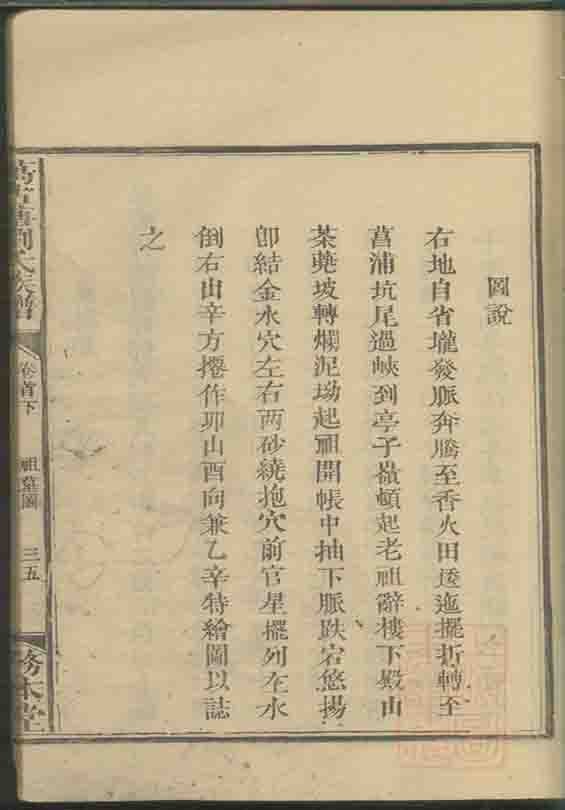 圖說
右地自省壠發脈奔騰至香火田逶迤擺折轉至
菖浦坑尾過峽到亭子嶺頓起老祖辭樓下殿由
茶蓖坡轉爛泥坳起祖開帳中抽下脈跌宕悠揚
卽結金水穴左右两砂繞抱穴前官星擺列左水
倒右由辛方撥作夘山酉向兼乙辛特繪圖以誌
之
劉氏族譜
卷首下
祖墓圖
三五
務本堂